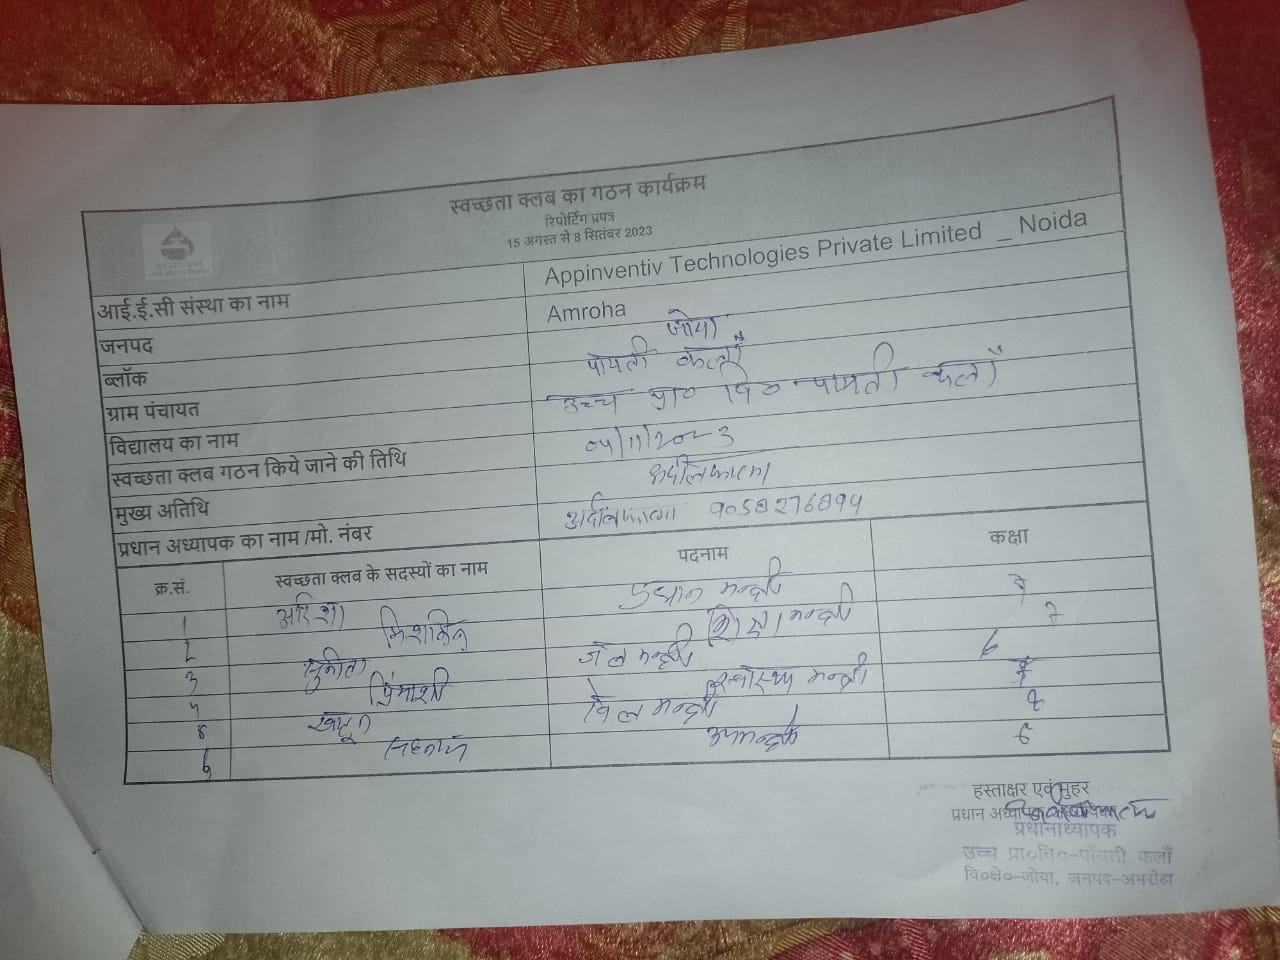 स्वच्छता क्लब का गठन कार्यक्रम
रिपोर्टिंग प्रपत्र
15 अगस्त से 8 सितंबर 2023
आई.ई.सी संस्था का नाम Appinventiv Technologies Private Limited _ Noida
जनपद Amroha
ब्लॉक जोया
ग्राम पंचायत पायती कलाँ
विद्यालय का नाम उच्च प्रा० वि० पायती कलाँ
स्वच्छता क्लब गठन किये जाने की तिथि 04/11/2023
मुख्य अतिथि
प्रधान अध्यापक का नाम /मो. नंबर
क्र.सं. स्वच्छता क्लब के सदस्यों का नाम पदनाम कक्षा
1 अरिशा प्रधान मन्त्री 7
2 शिक्षा मन्त्री 7
3 सुनीता जल मन्त्री 6
4 स्वास्थ्य मन्त्री
खेल मन्त्री 8
6 उपमन्त्री 6
हस्ताक्षर एवं मुहर
प्रधान अध्यापक
प्रधानाध्यापक
उच्च प्रा०वि०-पाँयती कलाँ
वि०क्षे०-जोया, जनपद-अमरोहा